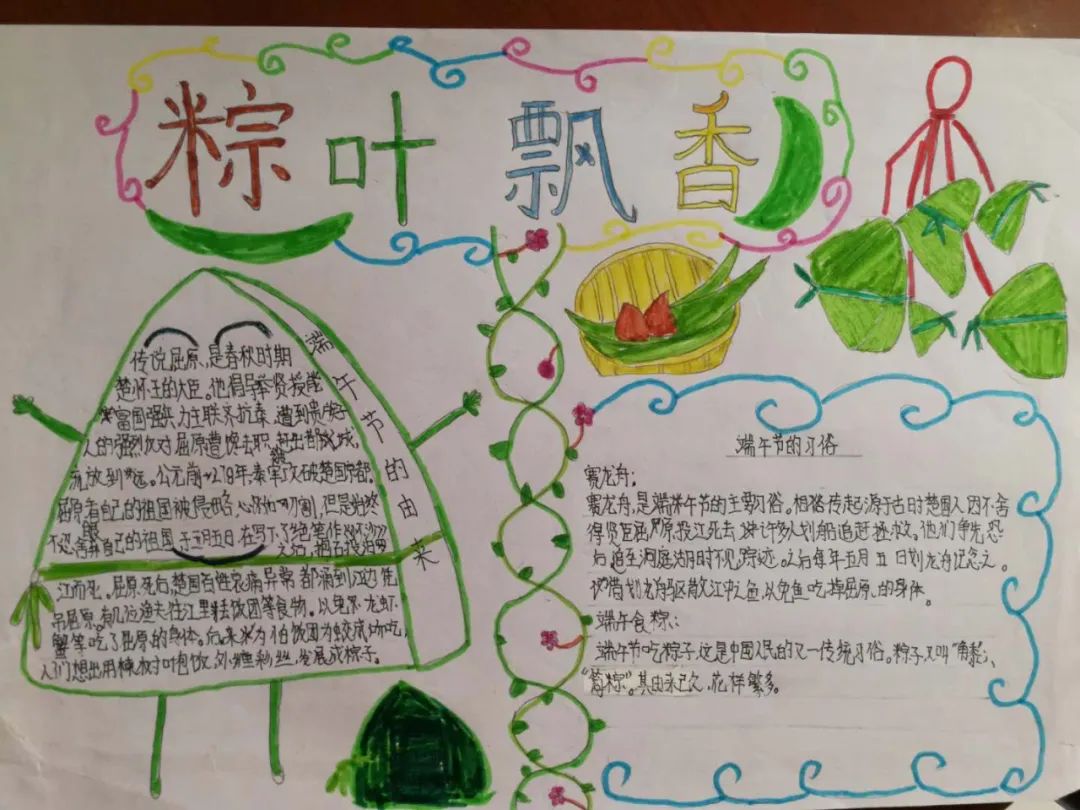 粽叶飘香
端午节的由来
传说屈原,是春秋时期
楚怀王的大臣。他倡导举贤授能
富国强兵力主联齐抗秦,遭到贵族子
人的强烈反对屈原遭馋去职,赶出都城,
流放到 远。公元前278年,秦军攻破楚国京都。
屈原看自己的祖国被侵略,心如刀割,但是始终
不忍舍弃自己的祖国于五月五日,在写下了绝笔作《怀沙》
之后,抱石投汨罗
江而死。屈原死后,楚国百姓哀痛异常都涌到江边凭
吊屈原。有几位渔夫往江里丢饭团等食物。以免 龙虾
蟹等吃了屈原的身体。后来 饭团为蛟龙 吃,
人们想出用楝树叶包饭,外缠彩丝,发展成棕子。
端午节的习俗
赛龙舟:
赛龙舟,是端午节的主要习俗。相传起源于古时楚国人因不舍
得贤臣屈原投江死去,许多人划船追赶拯救。他们争先恐
后,追至洞庭湖时不见踪迹。之后每年五月五日划龙舟记念之。
借划龙舟驱散江中之鱼,以免鱼吃掉屈原的身体。
端午食粽:
端午节吃粽子,这是中国人民的又一传统习俗。粽子,又叫"角黍"、
"筒粽"。其由来已久,花样繁多。